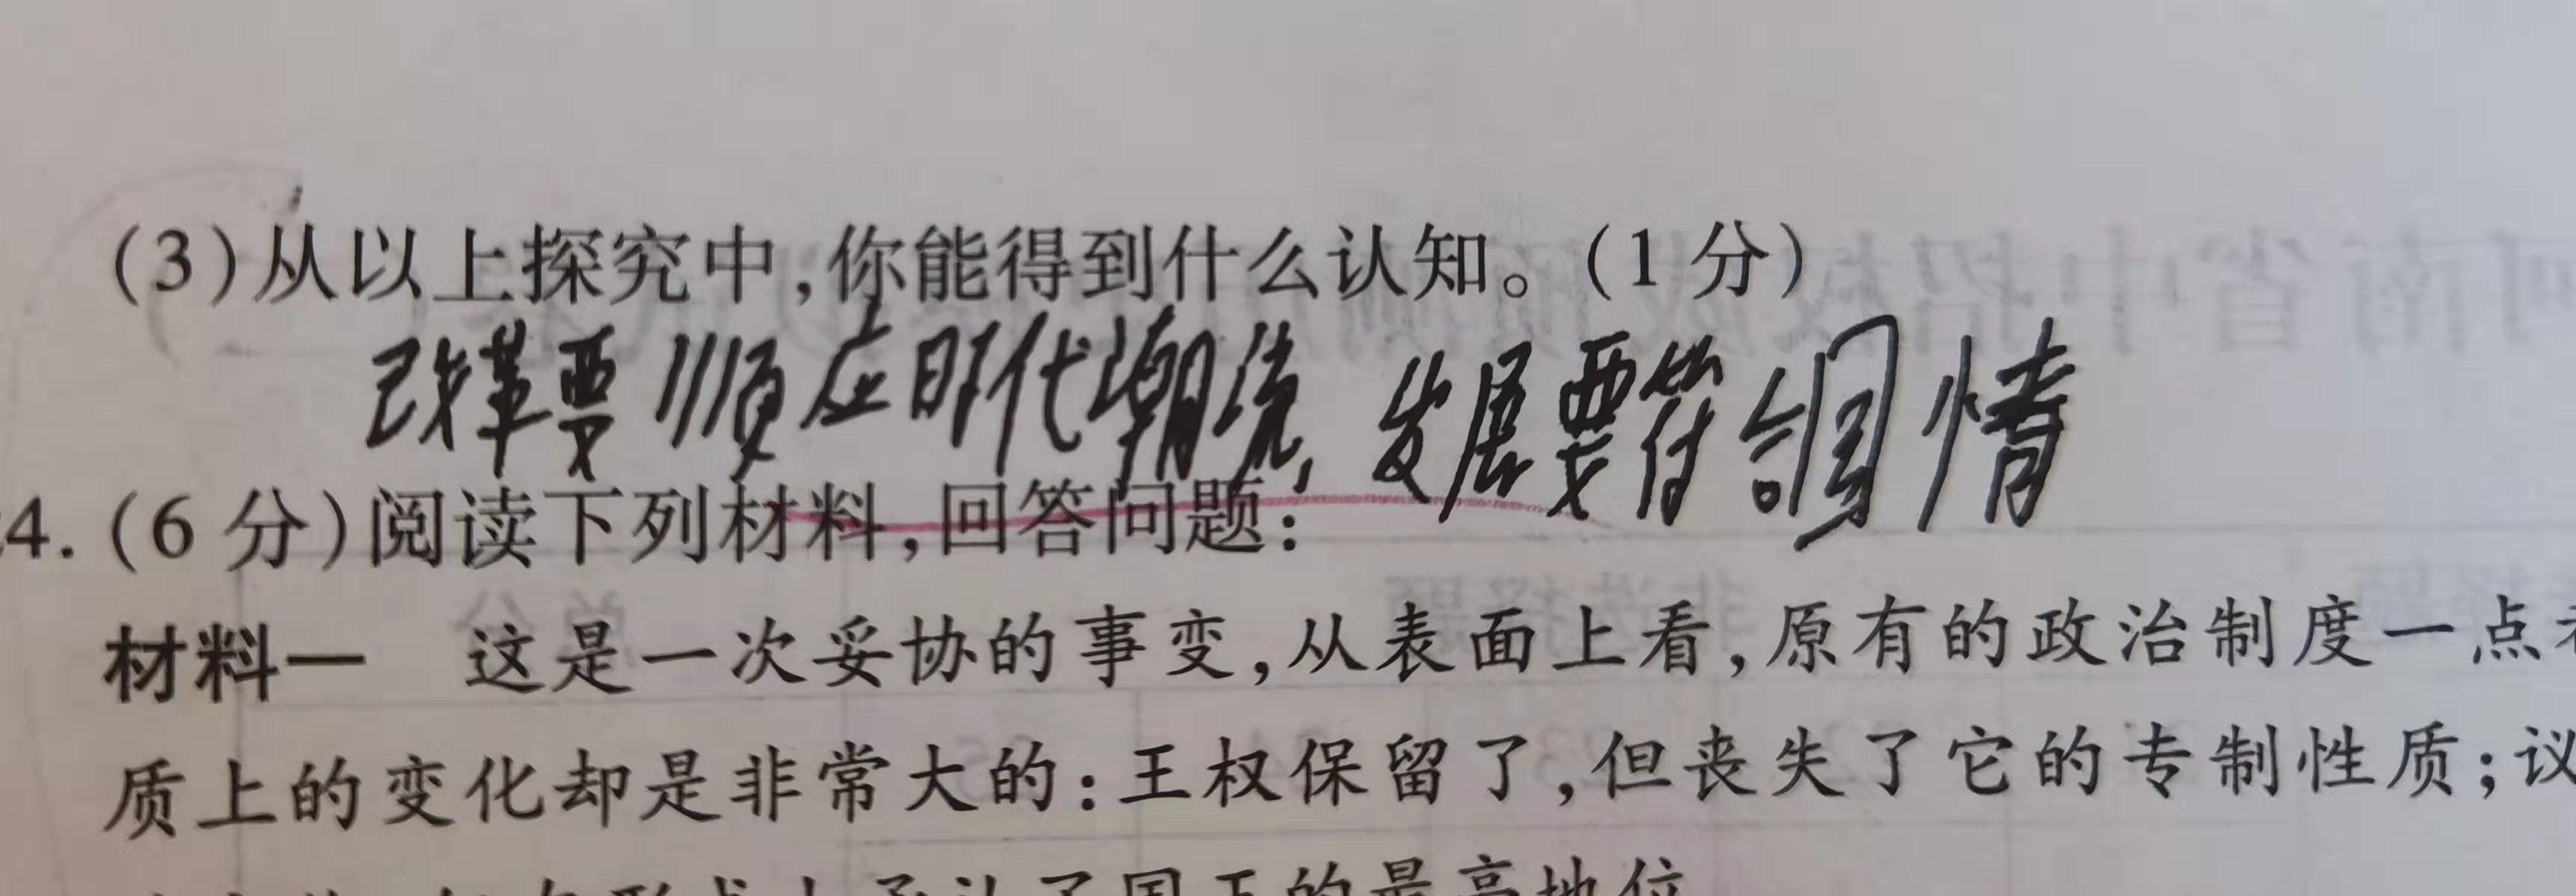 (3)从以上探究中,你能得到什么认知。(1 分)
改革要顺应时代潮流,发展要符合国情
4.(6 分)阅读下列材料,回答问题:
材料一 这是一次妥协的事变,从表面上看,原有的政治制度一点
质上的变化却是非常大的:王权保留了,但丧失了它的专制性质;议
了国王的最高地位